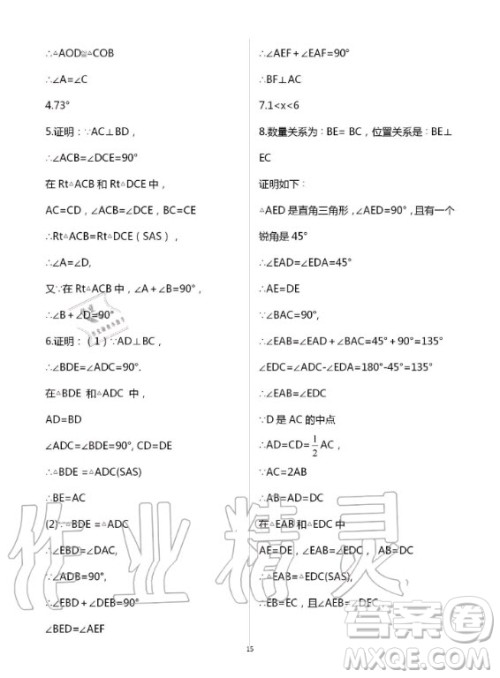 ∴△AOD≌△COB
∴∠A=∠C
4.73°
5.证明：∵AC⊥BD，
∴∠ACB=∠DCE=90°
在 Rt△ACB 和 Rt△DCE 中，
AC=CD，∠ACB=∠DCE，BC=CE
∴Rt△ACB=Rt△DCE（SAS），
∴∠A=∠D,
又∵在 Rt△ACB 中，∠A＋∠B=90°，
∴∠B＋∠D=90°
6.证明：（1）∵AD⊥BC，
∴∠BDE=∠ADC=90°.
在△BDE 和△ADC 中，
AD=BD
∠ADC=∠BDE=90°, CD=DE
∴△BDE =△ADC(SAS)
∴BE=AC
(2)∵△BDE =△ADC
∴∠EBD=∠DAC,
∵∠ADB=90°,
∴∠EBD＋∠DEB=90°
∠BED=∠AEF
∴∠AEF＋∠EAF=90°
∴BF⊥AC
7.1<x<6
8.数量关系为：BE= BC，位置关系是：BE⊥
EC
证明如下：
△AED 是直角三角形，∠AED=90°，且有一个
锐角是 45°
∴∠EAD=∠EDA=45°
∴AE=DE
∵∠BAC=90°,
∴∠EAB=∠EAD＋∠BAC=45°＋90°=135°
∠EDC=∠ADC-∠EDA=180°-45°=135°
∴∠EAB=∠EDC
∵D 是 AC 的中点
∴AD=CD=1/2 AC，
∵AC=2AB
∴AB=AD=DC
在△EAB 和△EDC 中
AE=DE，∠EAB=∠EDC， AB=DC
∴△EAB=△EDC(SAS),
∴EB=EC，且∠AEB=∠DEC,
15
作业精灵
答案卷
MXQE.COM